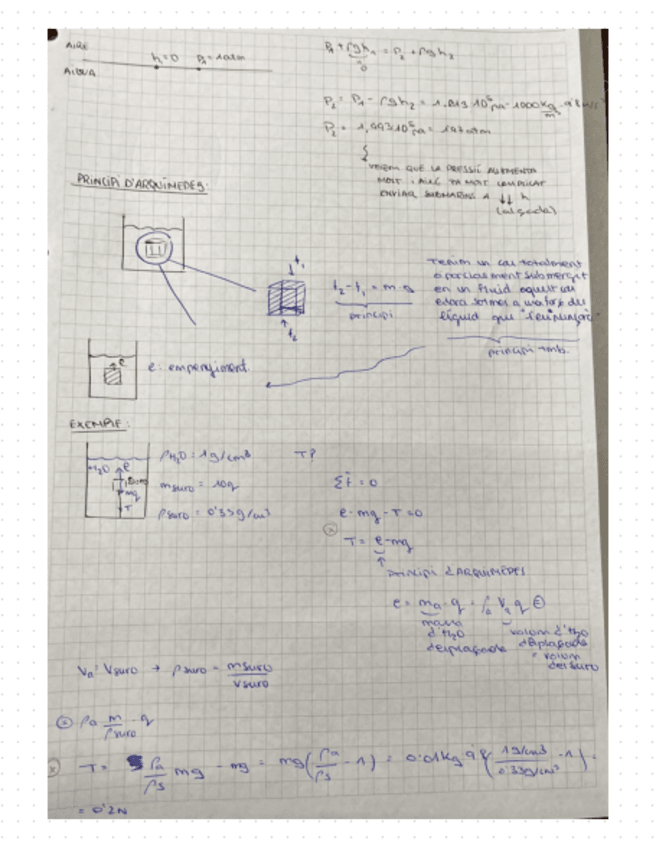 AIRE
h=0 P₁=1atm
AIGUA
P₁ + ρgh₁ = P₂ + ρgh₂
0
P₂ = P₁ - ρgh₂ = 1,013·10⁵ Pa - 1000 kg/m³ · 9'8 m/s²
VEIEM QUE LA PRESSIÓ AUGMENTA
MOLT
ENVIAR SUBMARINS A ↓↓ h
(alçada)
PRINCIPI D'ARQUIMEDES:
f₁
f₂
f₂ - f₁ = m·g
principi
Tenim un cos totalment
o parcialment submergit
en un fluid aquest cos
líquid que
principi
e
e: empenyiment.
EXEMPLE:
H₂O e
suro
mg
T
ρH₂O = 1g/cm³ T?
msuro = 10g
ρsuro = 0'33g/cm³
Σf = 0
e-mg-T=0
T = e-mg
PRINCIPI D'ARQUIMEDES
e = ma·g = ρa Va g
massa
d'H₂O
desplaçada
volum d'H₂O
desplaçada
= volum
del suro
Va = Vsuro → ρsuro = msuro/Vsuro
ρa m/ρsuro · g
T = ρa/ρs mg - mg = mg(ρa/ρs - 1) = 0'01kg 9'8(1g/cm³/0'33g/cm³ - 1) =
= 0'2N